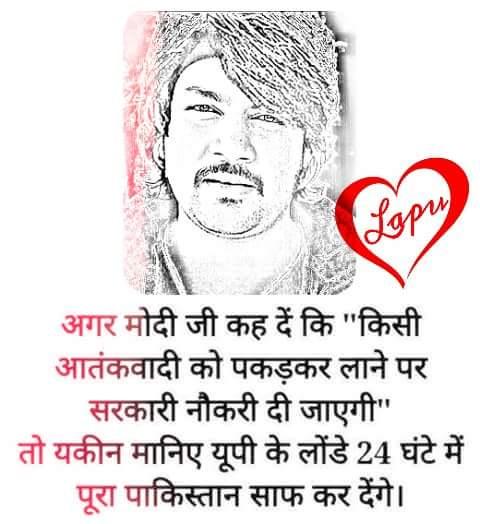 Lapu
अगर मोदी जी कह दें कि "किसी
आतंकवादी को पकड़कर लाने पर
सरकारी नौकरी दी जाएगी"
तो यकीन मानिए यूपी के लोंडे 24 घंटे में
पूरा पाकिस्तान साफ कर देंगे।